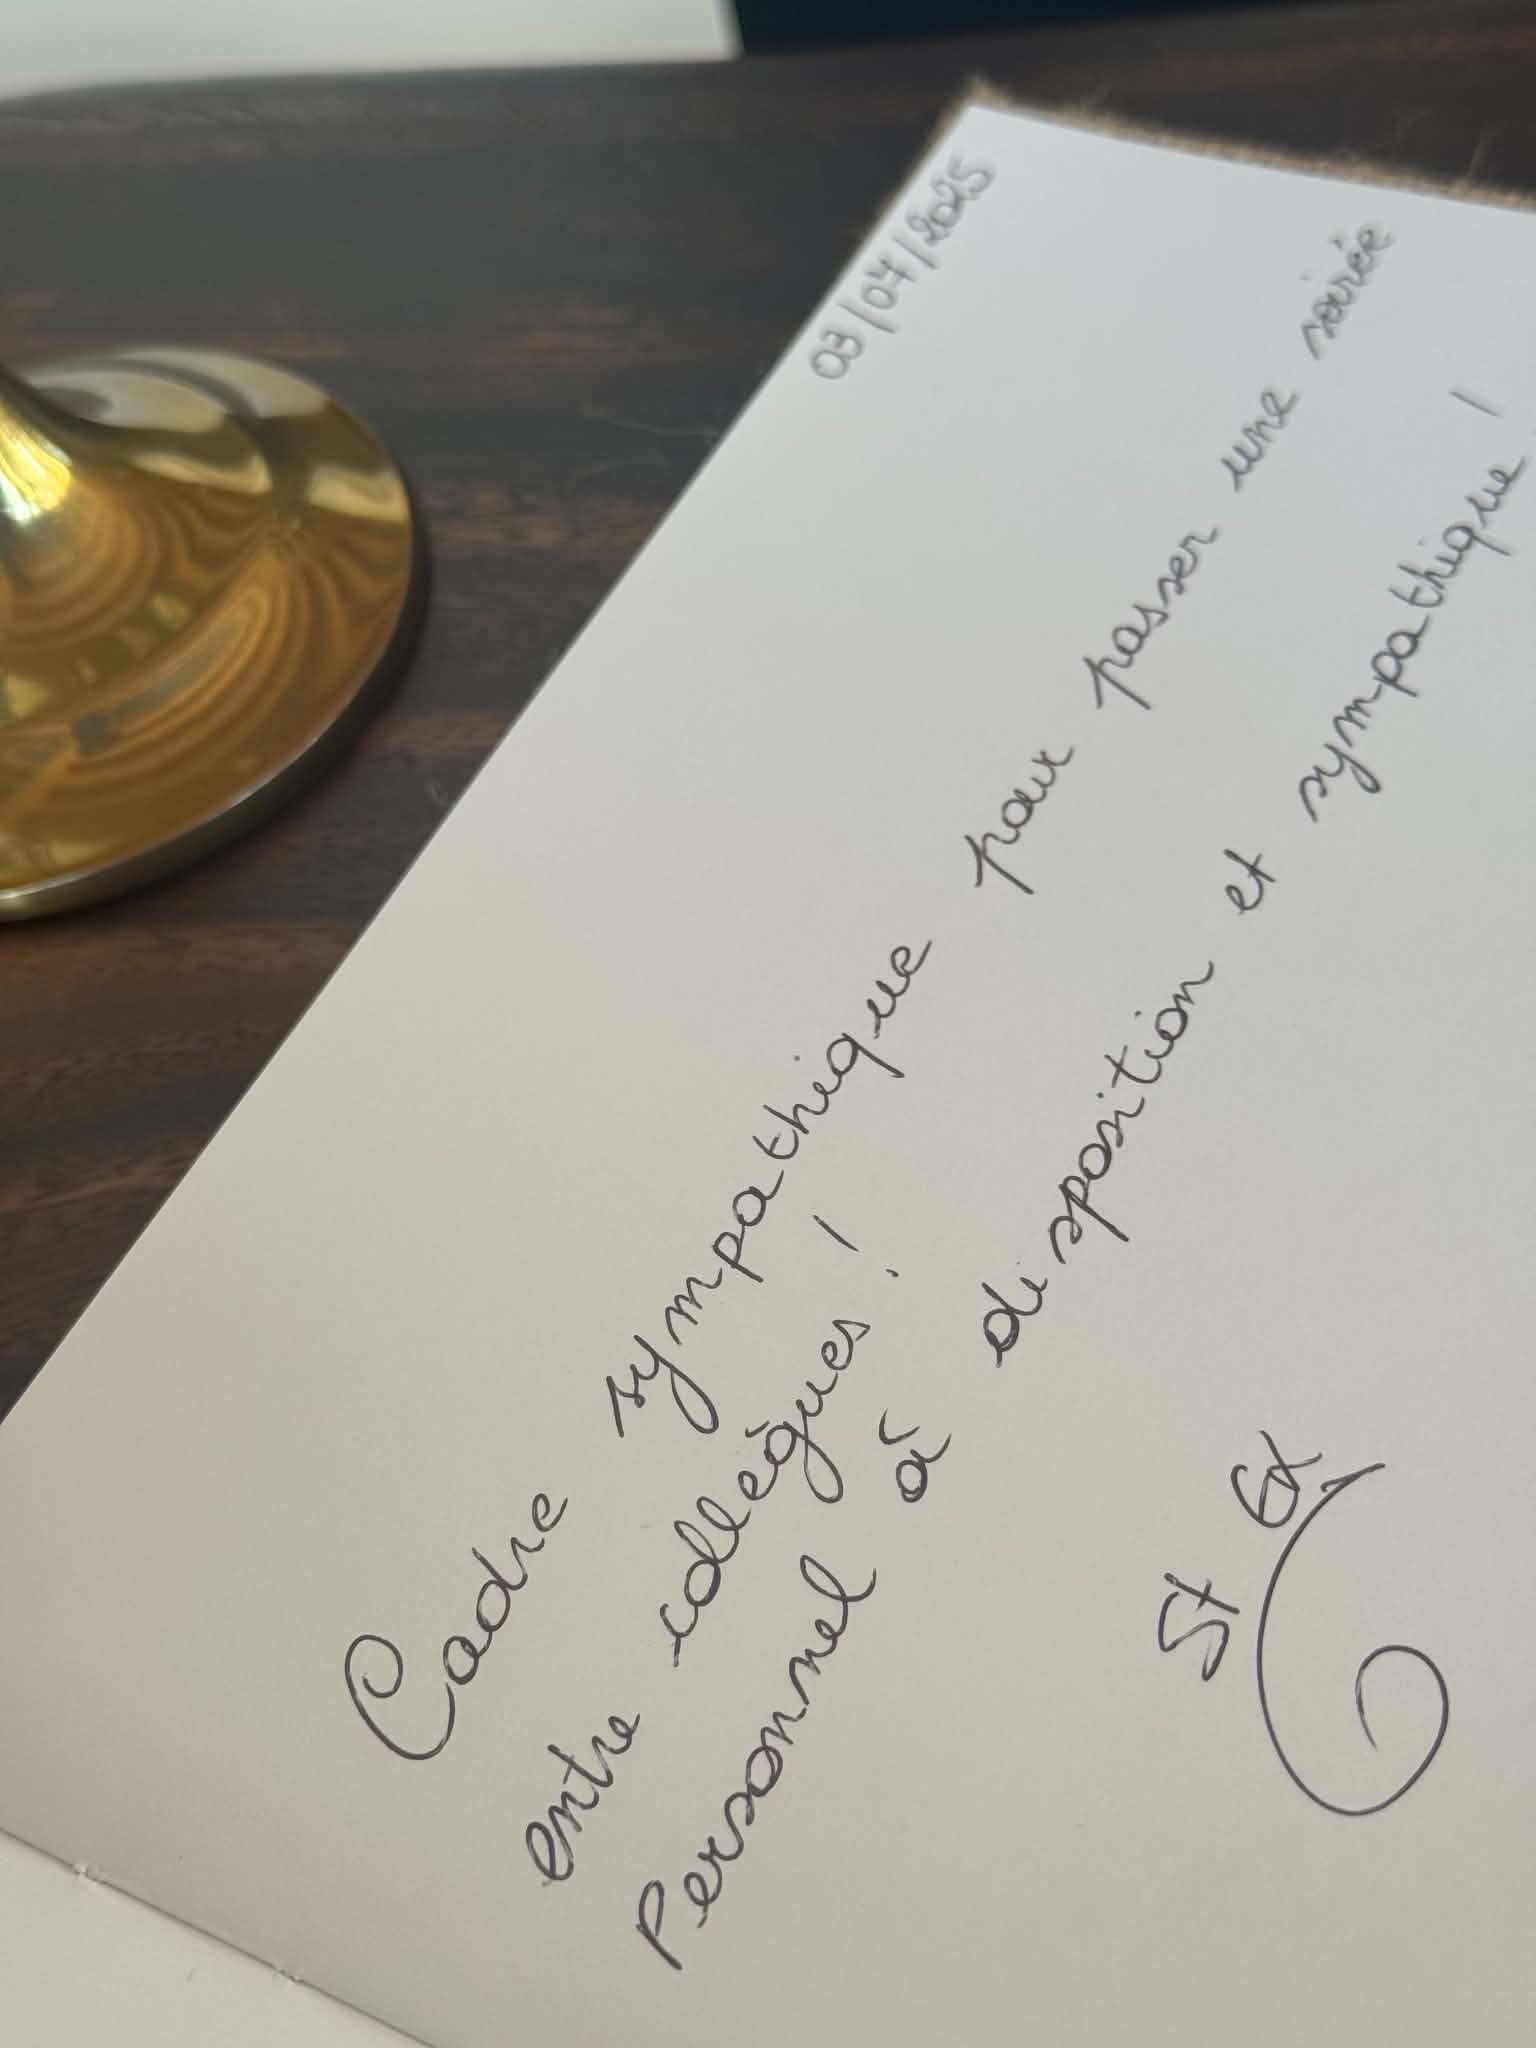 03/07/2025
Cadre sympathique pour passer une soirée
entre collègues !
Personnel à disposition et sympathique !
St Ex